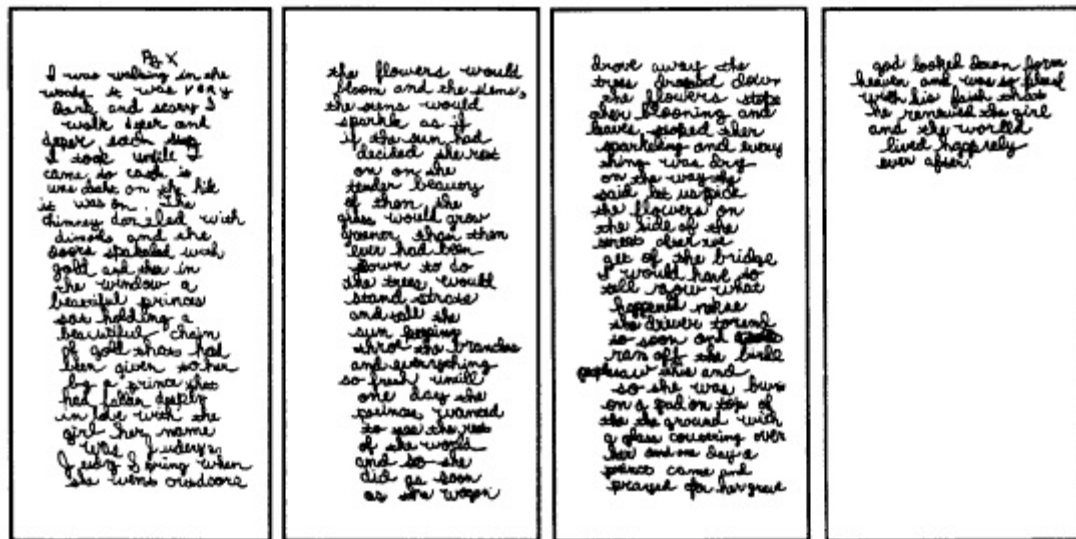 By X
I was walking in the
woods it was very
dark and scary I
walk deper and
deper each step
I took untile I
came to castl is
was on the hill
it was on. The
chimney dazzled with
dimods and the
doors spakeled with
gold and ther in
the window a
beautiful princes
sat holding a
beautiful chain
of gold that had
been given to her
by a prince that
had fallen deeply
in love with the
girl her name
was
when
she went outdoors
the flowers would
bloom and the stems,
the stems would
sparkle as if
if the sun had
decided she rest
on on the
tender beauty
of them, the
grass would grow
greener than then
ever had been
down to do
the trees would
stand strate
and tall the
sun
throt the branches
and everything
so fresh untill
one day the
princes wanted
to see the rest
of the world
and so she
did as soon
as the wagon
drove away the
trees down
the flowers stopt
ther blooming and
leaves stoped ther
sparkeling and every
thing was dry
on the way she
said let us pick
the flowers on
the side of the
street after we
get of the bridge
I would have to
tell yow what
happened nekse
the driver
to soon and
ran off the
saw this and
so she was
on a pad on top of
the the ground with
a glass covering over
her and one day a
prince came and
prayed for her grave
god looked down from
heaven and was so plesed
with his faith that
he renewed the girl
and the worlld
lived happely
ever after.